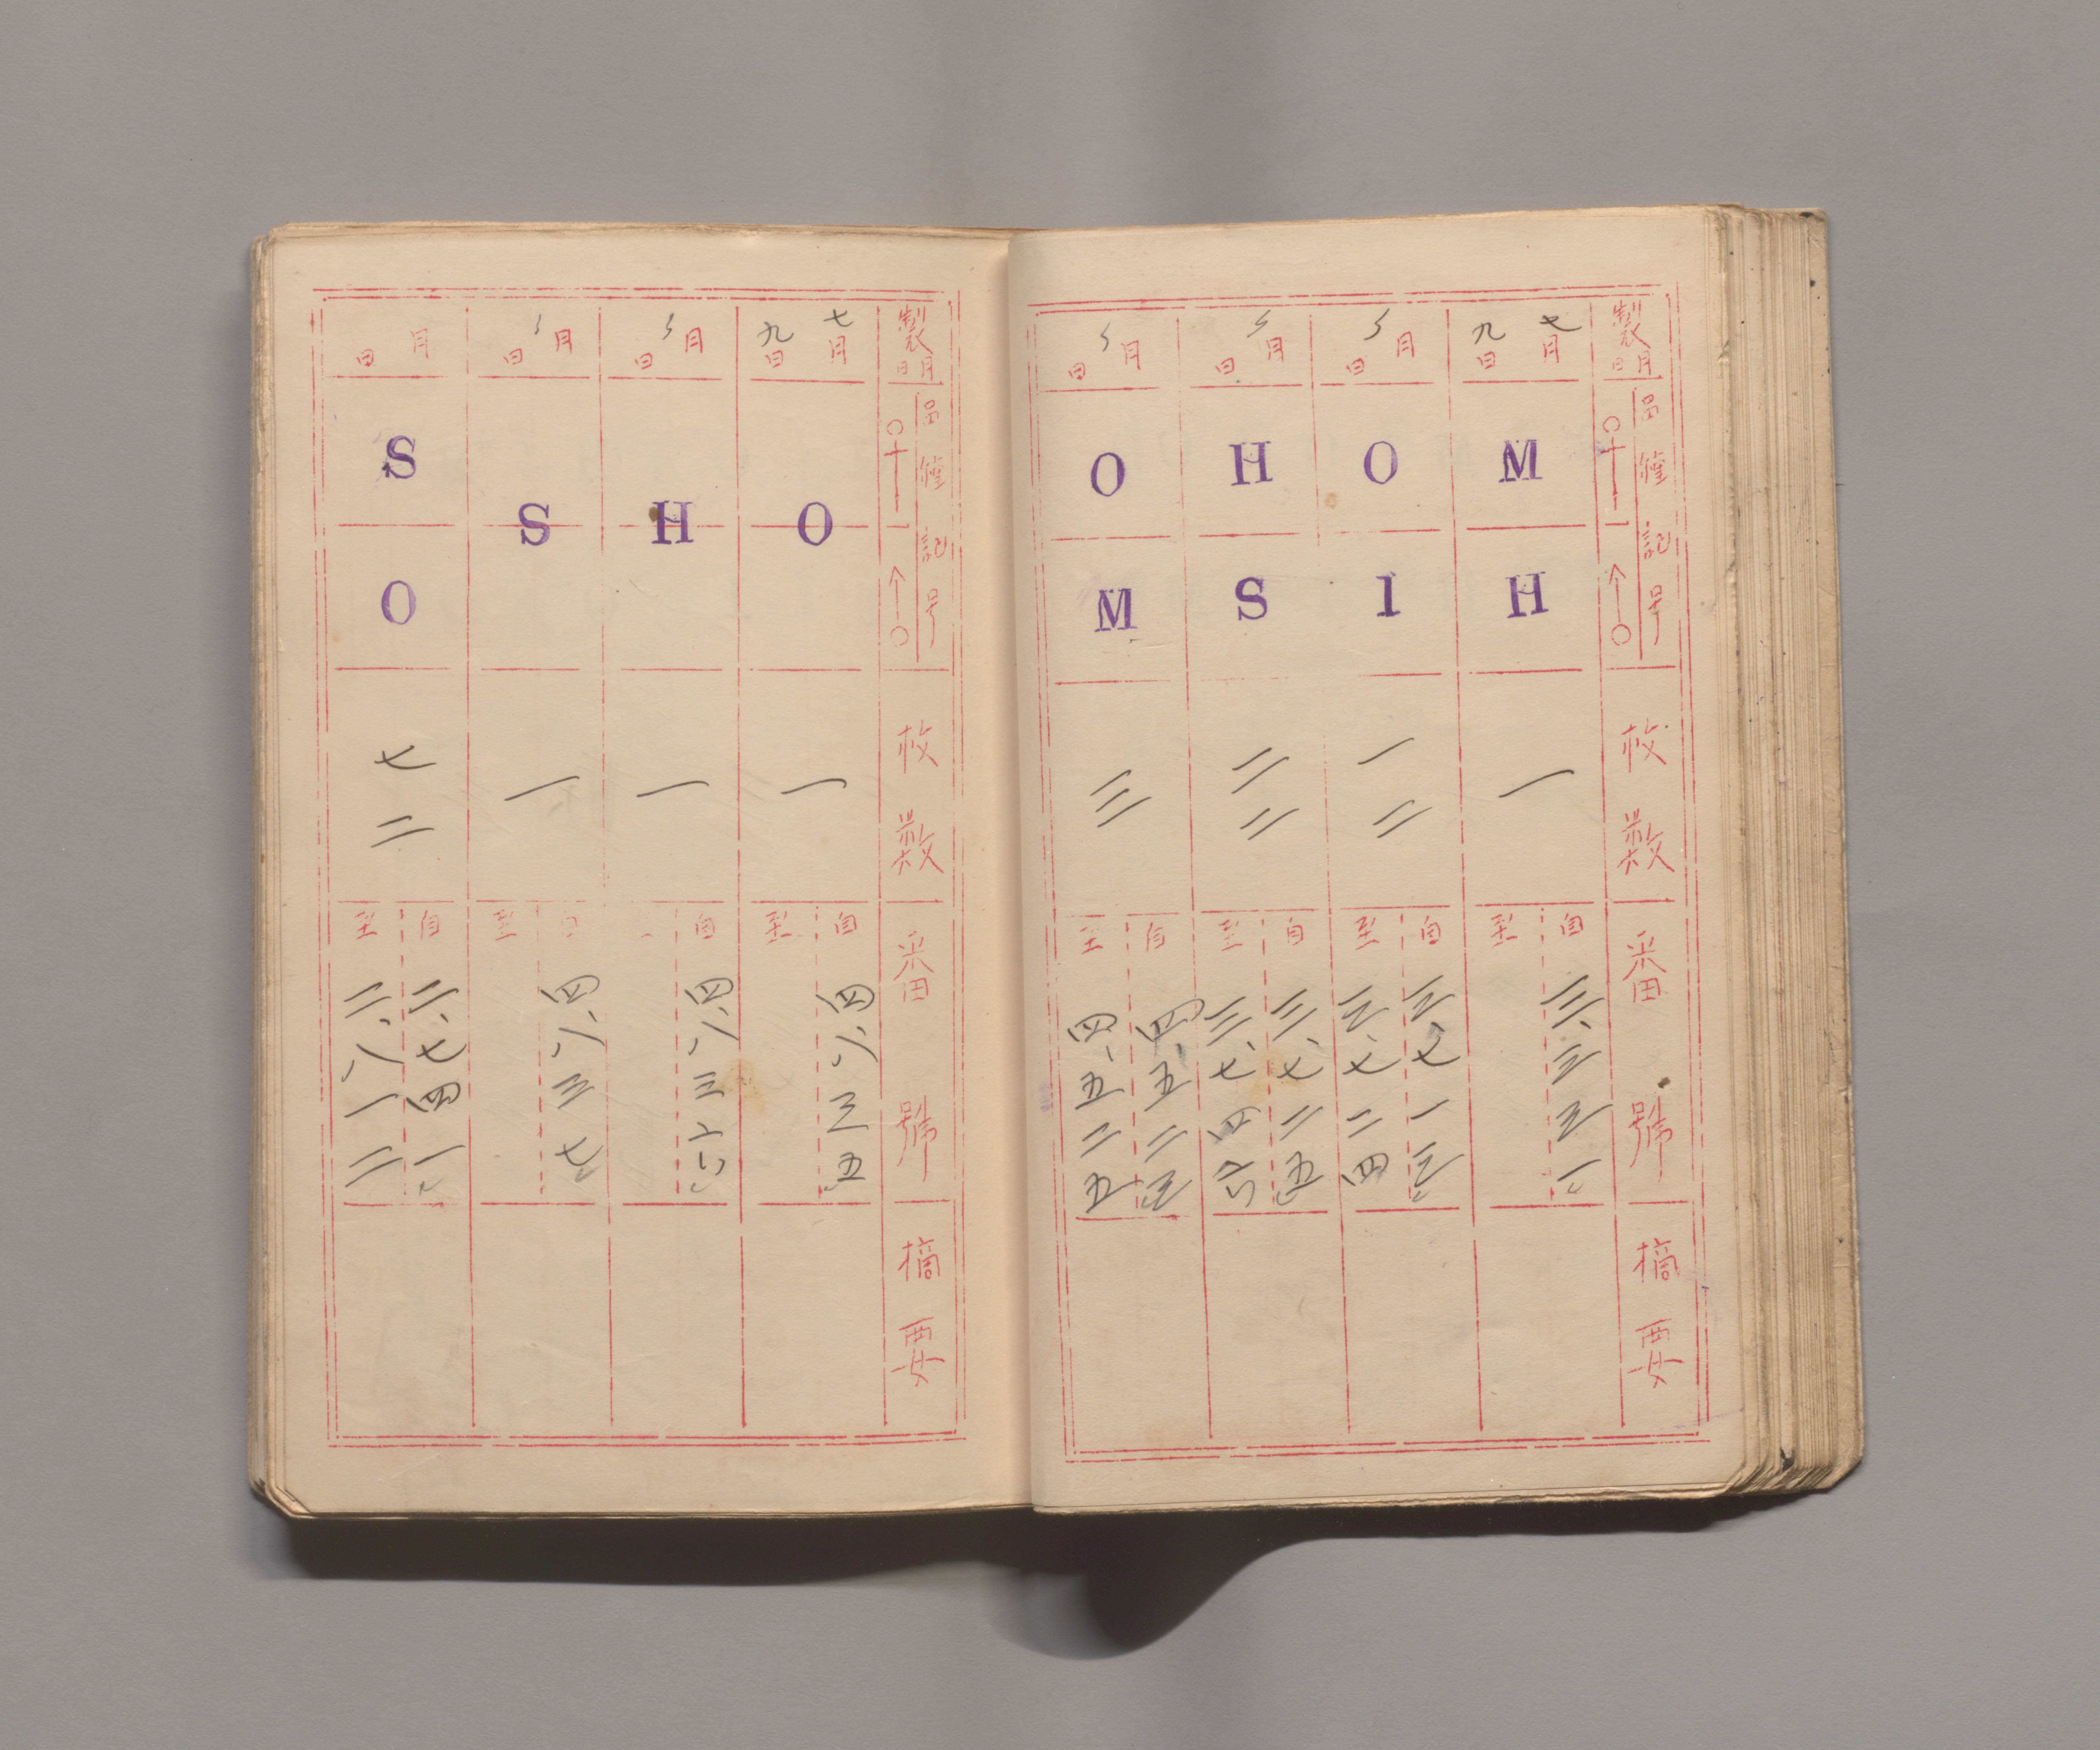 製月日
品種記号
枚数
番號
摘要
七月九日
M
H
一
自 三、三三一
至
〃月日
O
1
一二
自 三、七一三
至 三、七二四
〃月日
H
S
二二
自 三、七二五
至 三、七四六
〃月日
O
M
三
自 四、五二三
至 四、五二五
製月日
品種記号
枚数
番號
摘要
七月九日
O
一
自 四、六三五
至
〃月日
H
一
自 四、六三六
〃月日
S
一
自 四、六三七
至
月日
S
O
七二
自 二、七四一
至 二、八一二